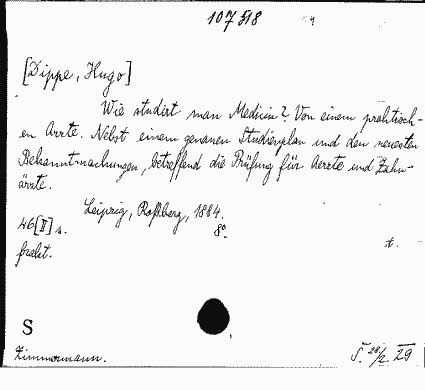 107518
[Dippe, Hugo]
Wie studirt man Medicin? Von einem praktisch-
en Arzte. Nebst einem genauen Studienplan und den neuesten
Bekanntmachungen, betreffend die Prüfung für Aerzte und Zahn-
ärzte.
Leipzig, Roßberg, 1884.
46[II] s. 8°.
t.
S
Zimmermann.
29